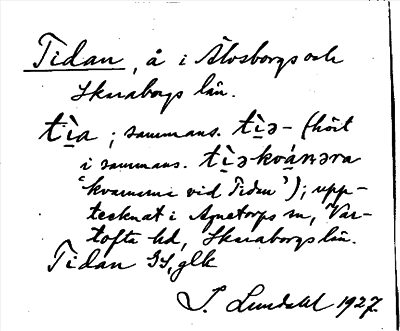 Tidan, å i Älvsborgs och
Skaraborgs län.
tìa; sammans. tìə- (hört
i sammans. tìəkvánəra
'kvarnarna vid Tidan'); upp-
tecknat i Agnetorps sn, Var-
tofta hd, Skaraborgs län.
Tidan glk
S. Lundahl 1927.